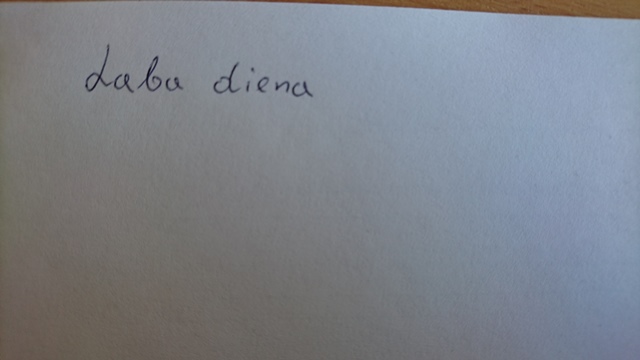 Laba diena